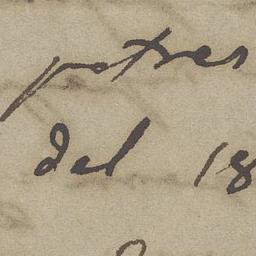 potres
del 18